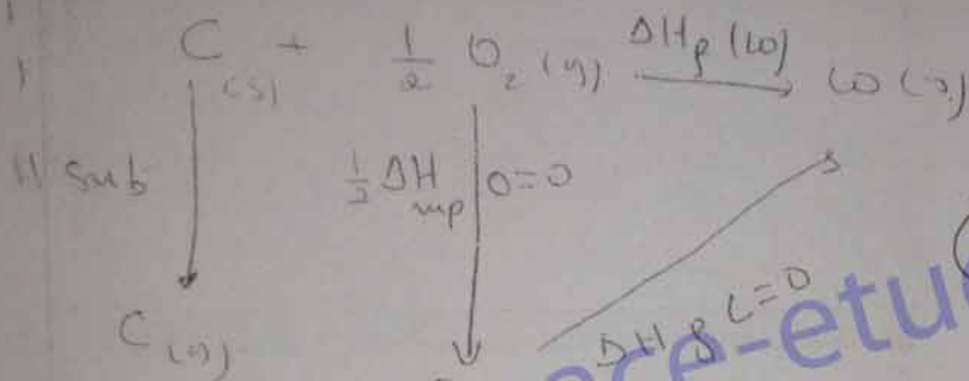 C (s) + 1/2 O₂ (g) ΔHf (CO) → CO (g)
H sub
1/2 ΔH rup O=O
ΔHf C=O
C (g)
ce-etu